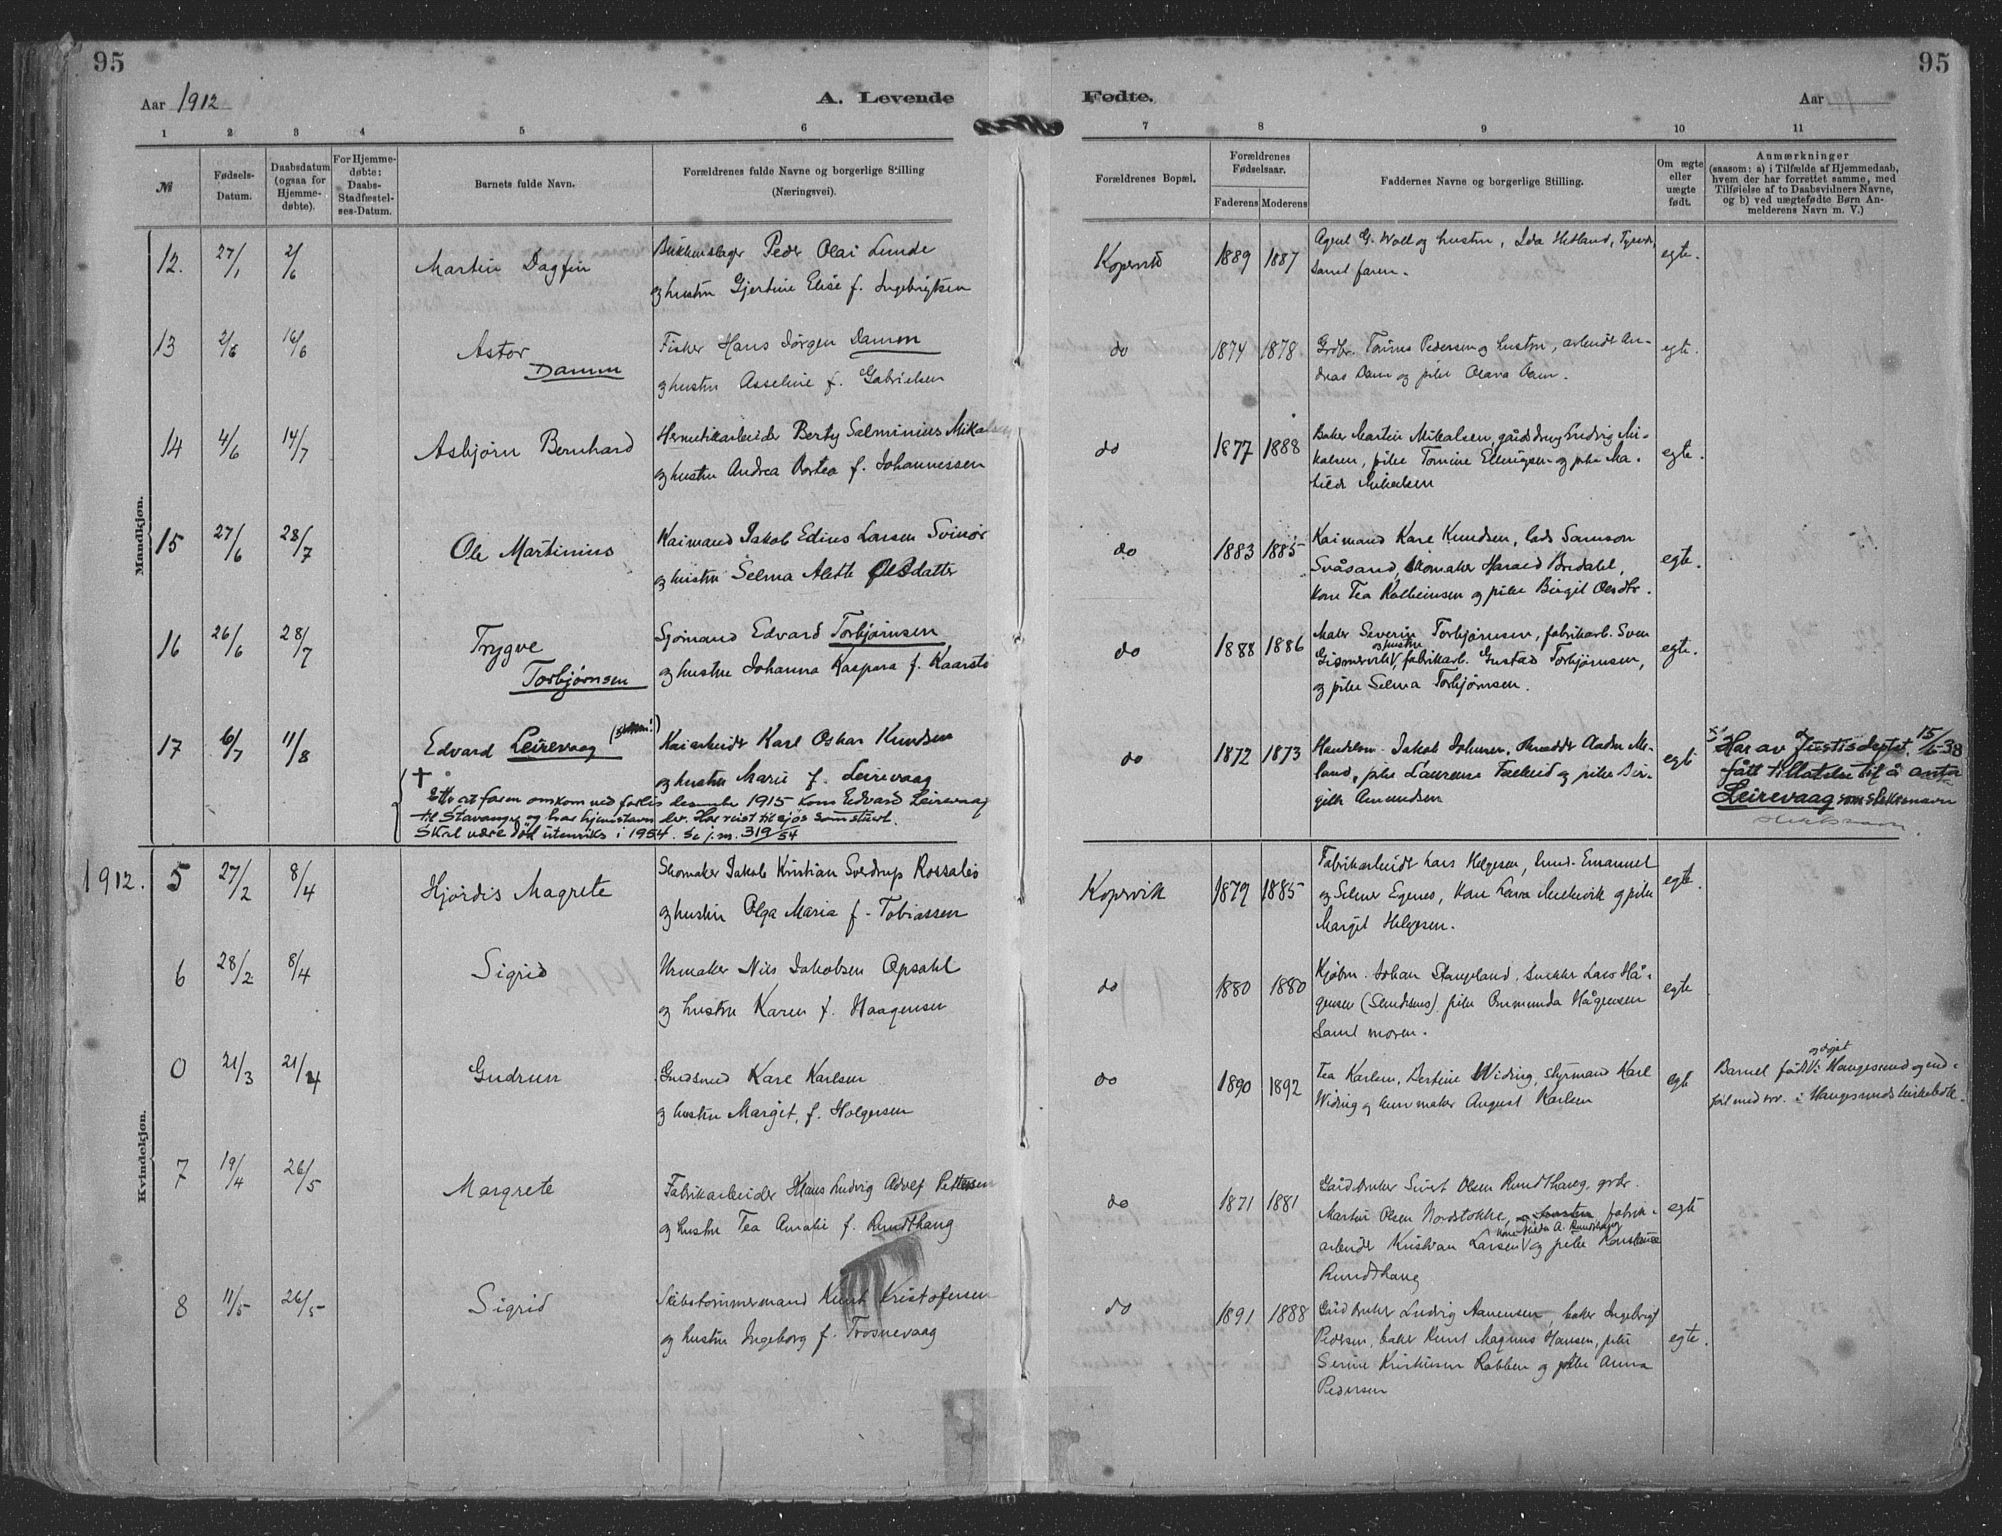 95
95
Aar 1912
A. Levende
Fødte.
Aar
1 2 3 4 5 6 7 8 9 10 11
№
Fødsels-
Datum.
Daabsdatum
(ogsaa for
Hjemme-
døbte).
For Hjemme-
døbte:
Daabs-
Stadfæstel-
ses-Datum.
Barnets fulde Navn.
Forældrenes fulde Navne og borgerlige Stilling
(Næringsvei).
Forældrenes Bopæl.
Forældrenes
Fødselsaar.
Faderens Moderens
Faddernes Navne og borgerlige Stilling.
Om ægte
eller
uægte
født.
Anmærkninger
(saasom: a) i Tilfælde af Hjemmedaab,
hvem der har forrettet samme, med
Tilføielse af to Daabsvidners Navne,
og b) ved uægtefødte Børn An-
melderens Navn m. V.)
Mandkjøn.
12. 27/1 2/6 Martin Dagfin
Peder Olai Lunde
og hustru Gjertine Elise f. Ingebrigtsen
Kopervik 1889 1887
Agent G. Wold og hustru, Ida Hetland,
samt faren.
egte.
13 2/6 16/6 Astor
Damm
Fisker Hans Jørgen Damm
og hustru Asseline f. Gabrielsen
do 1874 1878
Tønnes Pedersen og hustru, arbeidr An-
dreas Dam og pike Olava Dam.
egte.
14 4/6 14/7 Asbjørn Bernhard
Hermetikarbeider Berty Salminius Mikalsen
og hustru Andrea Dortea f. Johannessen
do 1877 1888
Baker Martin Mikalsen, gårdbrug Ludvig Mi-
kalsen, pike Tomine Ellingsen og pike Ma-
tilde Mikalsen
egte.
15 27/6 28/7 Ole Martinius
Kaimand Jakob Edius Larsen Svinør
og hustru Selma Alette Olsdatter
do 1883 1885
Kaimand Karl Knudsen, lods Samson
Svåsand, skomaker Harald Bredahl,
kone Tea Kolbeinsen og pike Birgit Olsdtr.
egte.
16 26/6 28/7 Trygve
Torbjørnsen
Sjømand Edvard Torbjørnsen
og hustru Johanna Kaspara f. Kaarstø
do 1888 1886
Maler Severin Torbjørnsen, fabrikarb. Sven
og hustru
Gismervik, fabrikarb. Gustad Torbjørnsen,
og pike Selma Torbjørnsen.
egte.
17 6/7 11/8 Edvard Leirevaag
Kaiarbeidr Karl Oskar Knudsen
og hustru Marie f. Leirevaag
do 1872 1873
Jakob Johnsen,
land, pike Laurense og pike Bir-
gitte Amundsen
egte
Har av Justisdeptet. 15/6-38
fått tillatelse til å anta
Leirevaag som slektsnavn
Etter at faren omkom ved forlis desember 1915 kom Edvard Leirevaag
til Stavanger og har hjemstavn der. Har reist til sjøs som stuert.
Skal være død utenriks i 1954. Se j.nr. 319/54
Kvindekjøn.
1912. 5 27/2 8/4 Hjördis Magrete
Skomaker Jakob Kristian Sverdrup Rossabø
og hustru Olga Maria f. Tobiassen
Kopervik 1879 1885
Fabrikarbeidr Lars Helgesen, Emanuel
og Selmer Egenes, kone Lava og pike
Margit Helgesen.
egte.
6 28/2 8/4 Sigrid
Urmaker Nils Jakobsen Opsahl
og hustru Karen f. Haagensen
do 1880 1880
Kjøbm. Johan Stangeland, snekker Lars Hå-
gensen pike Ommunda Hågensen
samt moren.
egte
0 21/3 21/4 Gudrun
Karl Karlsen
og hustru Margit, f. Holgersen
do 1890 1892
Tea Karlsen, Bertine Widing, styrmand Karl
Widing og August Karlsen
egte
og døpt
Barnet født i Haugesund og ind-
ført med nr. i Haugesunds kirkebok.
7 19/4 26/5 Margrete
Fabrikarbeider Hans Ludvig Adolf Pettersen
og hustru Tea Amalie f. Rundthaug
do 1871 1881
Gårdbruker Sivert Olsen Rundthaug, grbr.
Martin Olsen Nordstokke, fabrik-
kone A. Rundthaug
arbeider Kristian Larsen og pike Konstanse
Rundthaug
egte
8 11/5 26/5 Sigrid
Skibstømmermand Knut Kristofersen
og hustru Ingeborg f. Trosnevaag
do 1891 1888
Gårdbruker Ludvig Aanensen, baker Ingebrigt
Pedersen, baker Knut Magnus Hansen, pike
Serine Kristinsen Robben og pike Anna
Pedersen
egte.